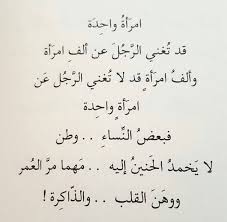 امرَأةُ واحِدَة
قد تُغني الرَّجُلَ عن ألفِ امرَأة
وألفُ امرَأةٍ قد لا تُغني الرَّجُل عَن
امرَأةٍ واحِدة
فبعضُ النِّساءِ . . وطن
لا يَخمدُ الحَنينُ إليه . . مَهما مرَّ العُمر
ووهَنَ القلب . . والذّاكِرة !